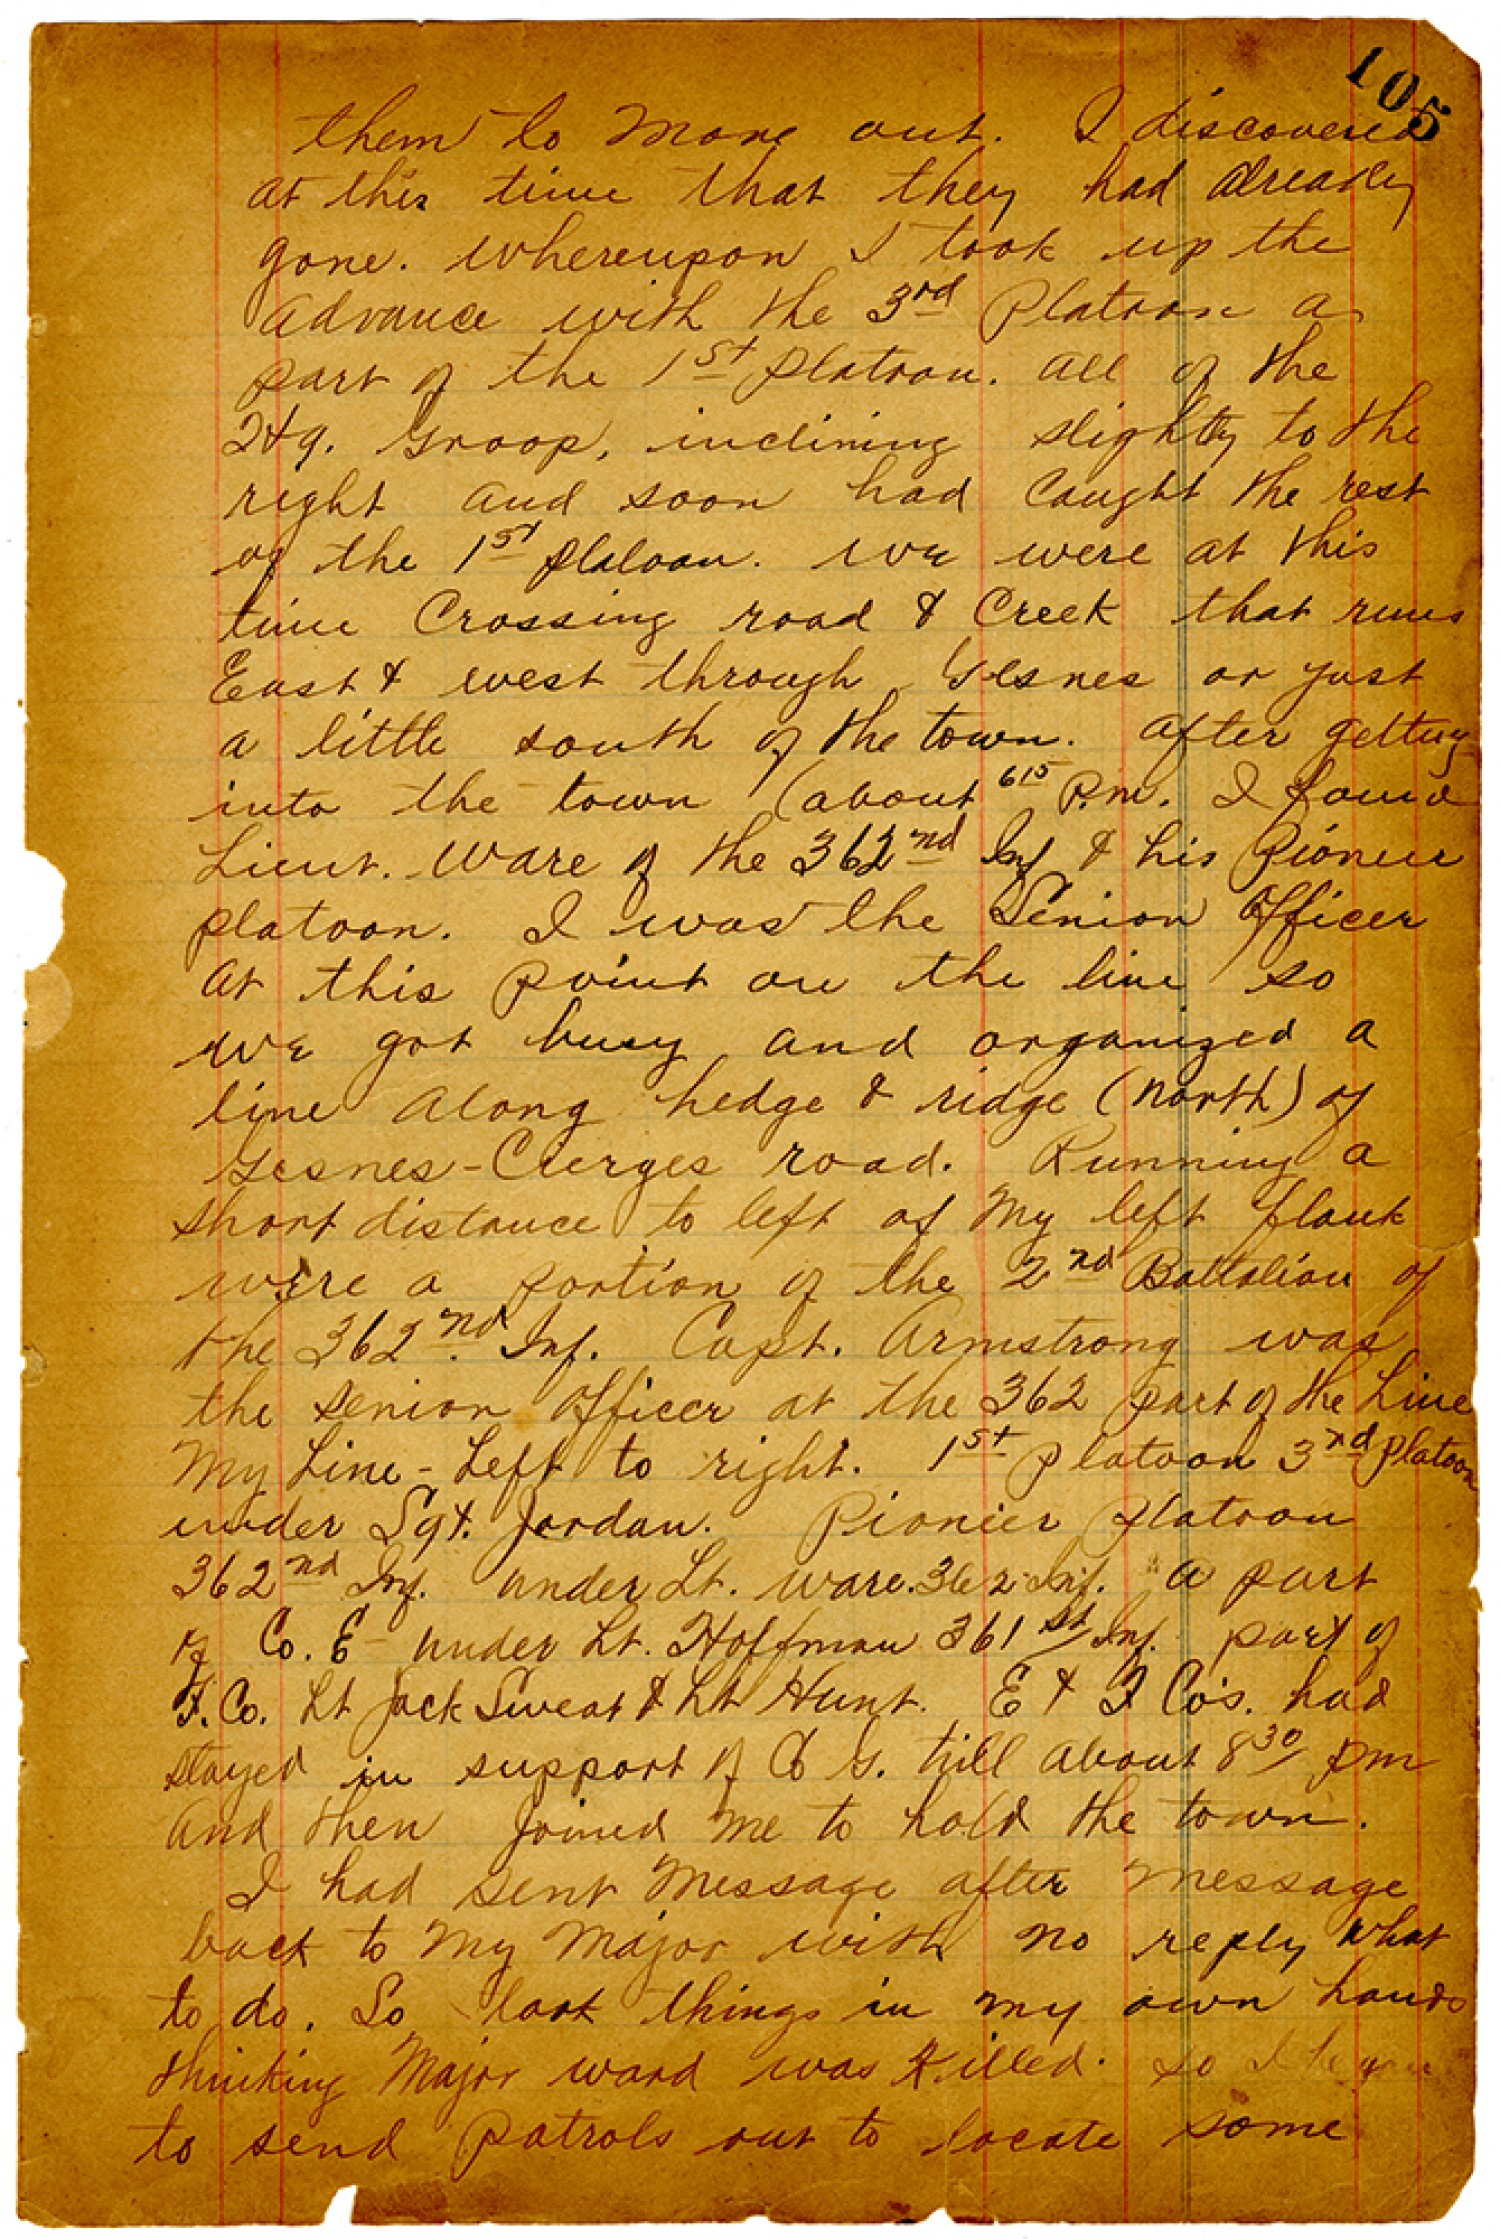 105
them to Move out. I discovered
at this time that they had already
gone. Whereupon I took up the
advance with the 3rd Platoon a
part of the 1st platoon. All of the
Hq. Groop, inclining slightly to the
right and soon had caught the rest
of the 1st platoon. We were at this
time Crossing road & Creek that runs
East & west through Gesnes or just
a little south of the town. After getting
into the town (about 615 P.m. I found
Lieut. Ware of the 362nd Inf & his Pioneer
platoon. I was the Senior Officer
at this point on the line so
we got busy and organized a
line along hedge & ridge (north) of
Gesnes-Cierges road. Running a
short distance to left of My left flank
were a portion of the 2nd Battalion of
the 362nd. Inf. Capt. Armstrong was
the senior Officer at the 362 part of the Line
My Line - Left to right. 1st platoon 3rd platoon
under Sgt. Jordan. Pionier platoon
362nd Inf. under Lt. Ware. 362 Inf. a part
of Co. E under Lt. Hoffman 361st Inf. part of
F. Co. Lt Jack Sweat & Lt Hunt. E & F Co's. had
stayed in support of Co G. till about 830 pm
and then Joined Me to hold the town.
I had sent Message after Message
back to My Major with no reply what
to do. So took things in my own hands
thinking Major Ward was Killed. So I began
to send patrols out to locate some